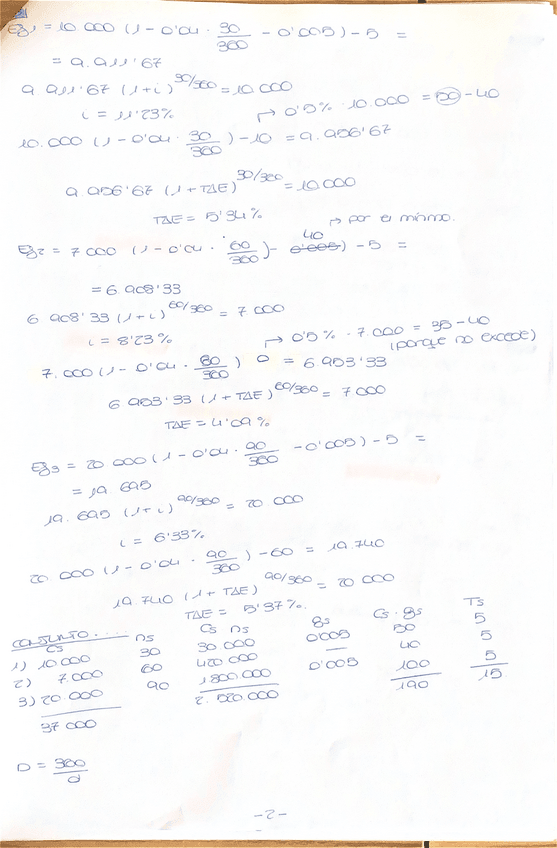 Ef1 = 10.000 (1 - 0'04 · 30/360 - 0'005) - 5 =
= 9.911'67
9 911'67 (1+i)^30/360 = 10.000
i = 11'23% ↱ 0'5% · 10.000 = 50 - 40
10.000 (1 - 0'04 · 30/360) - 10 = 9.956'67
9 956'67 (1 + TAE)^30/360 = 10.000
TAE = 5'34% ↱ por el mínimo.
Ef2 = 7 000 (1 - 0'04 · 60/360) - 0'005) 40 - 5 =
= 6.908'33
6 908'33 (1+i)^60/360 = 7 000
i = 8'23% ↱ 0'5% · 7.000 = 35 - 40
(porque no excede)
7.000 (1 - 0'04 · 60/360) 0 = 6.953'33
6 953'33 (1 + TAE)^60/360 = 7 000
TAE = 4'09%
Ef3 = 20 000 (1 - 0'04 · 90/360 - 0'005) - 5 =
= 19.695
19.695 (1+i)^90/360 = 20 000
i = 6'33%
20 000 (1 - 0'04 · 90/360) - 60 = 19.740
19.740 (1 + TAE)^90/360 = 20 000
TAE = 5'37%.
CONJUNTO ....
Cs ns Cs ns gs Cs · gs Ts
1) 10 000 30 30 000 0'005 50 5
2) 7.000 60 420 000 — 40 5
3) 20.000 90 1 800.000 0'005 100 5
37 000 2.520.000 190 15
D = 360/d
-2-